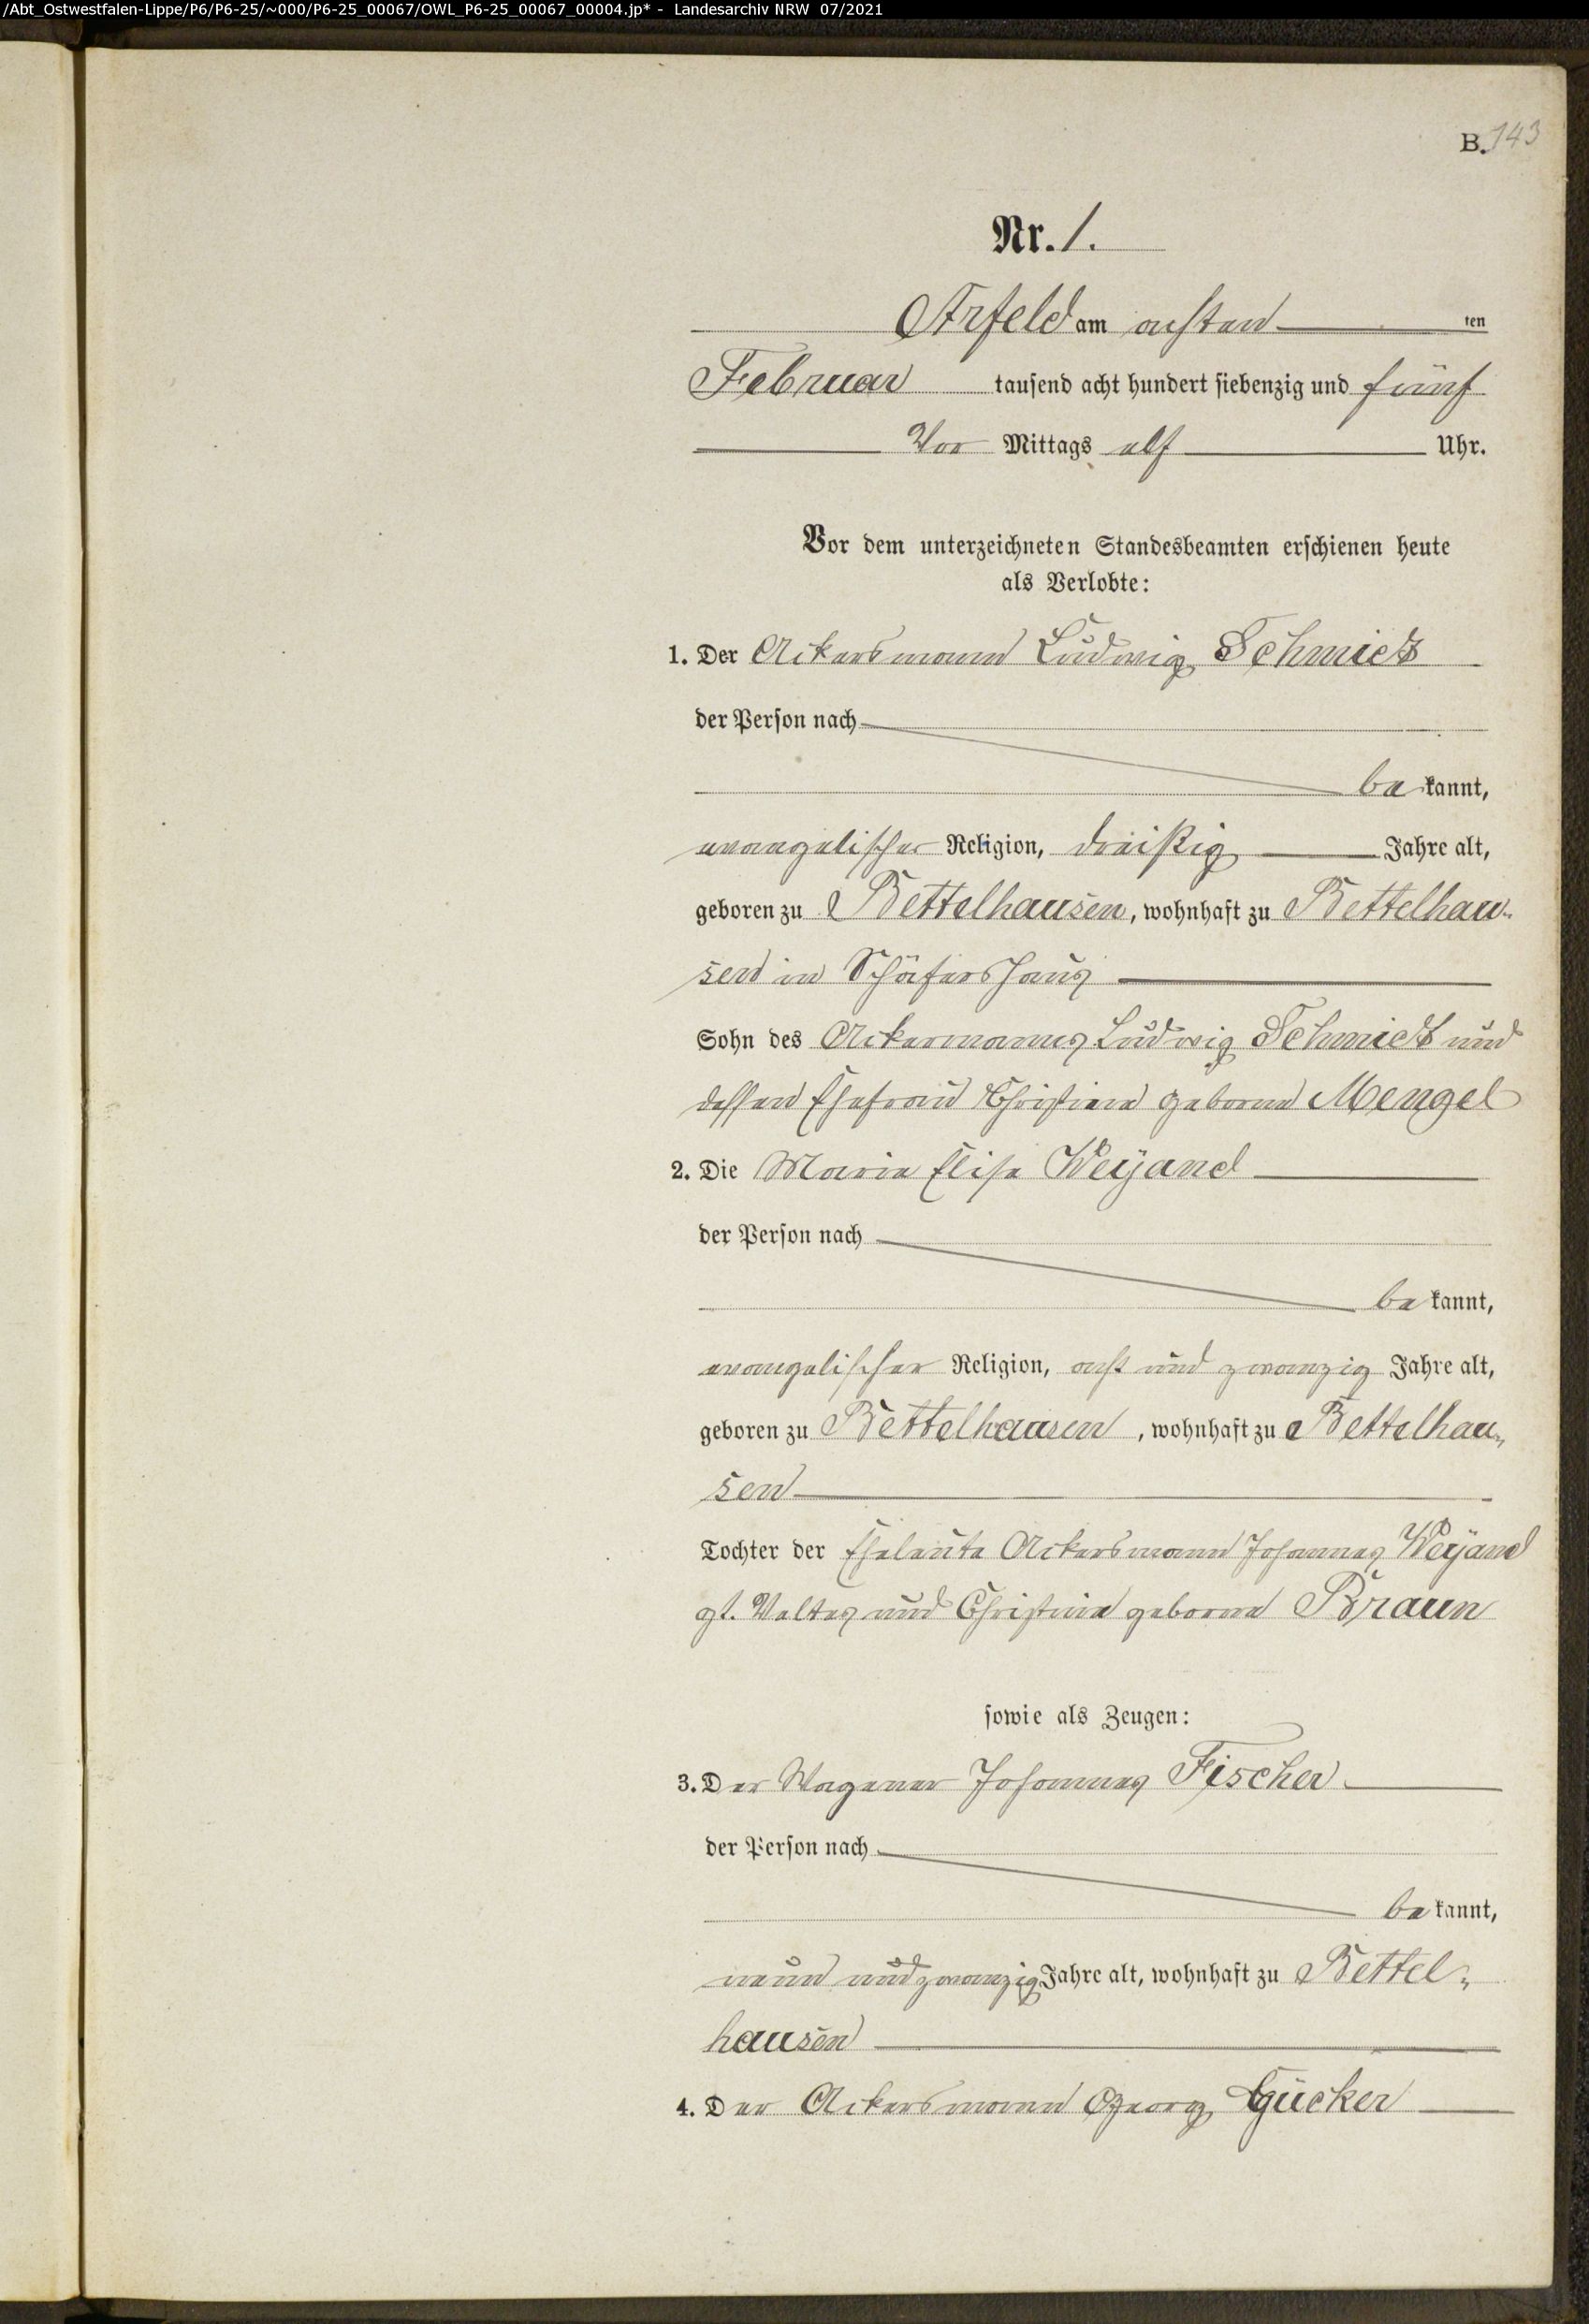 /Abt_Ostwestfalen-Lippe/P6/P6-25/~000/P6-25_00067/OWL_P6-25_00067_00004.jp* - Landesarchiv NRW 07/2021
B. 143
Nr. 1.
Arfeld am achten ten
Februar tausend acht hundert siebenzig und fünf
Vor Mittags elf Uhr.
Vor dem unterzeichneten Standesbeamten erschienen heute
als Verlobte:
1. Der Ackersmann Ludwig Schmidt
der Person nach
be kannt,
evangelischer Religion, dreißig Jahre alt,
geboren zu Bettelhausen, wohnhaft zu Bettelhau-
sen in Schäfers Haus
Sohn des Ackermanns Ludwig Schmidt und
dessen Ehefrau Christiane geborne Mengel
2. Die Marie Elise Weyand
der Person nach
be kannt,
evangelischer Religion, acht und zwanzig Jahre alt,
geboren zu Bettelhausen, wohnhaft zu Bettelhau-
sen
Tochter der Eheleute Ackersmann Johannes Weyand
gt. Valtes und Christine geborne Braun
sowie als Zeugen:
3. Der Wagener Johannes Fischer
der Person nach
be kannt,
neun und zwanzig Jahre alt, wohnhaft zu Bettel-
hausen
4. Der Ackersmann Georg Gücker